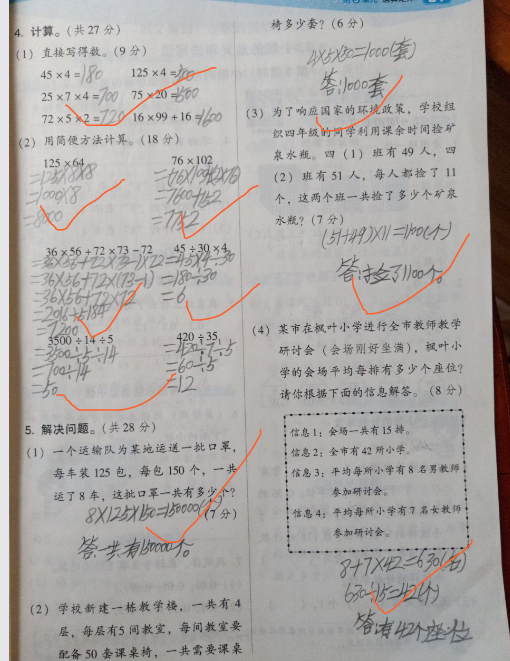 4. 计算。(共 27 分)
(1) 直接写得数。(9 分)
45 × 4 = 180 125 × 4 = 500
25 × 7 × 4 = 700 75 × 20 = 1500
72 × 5 × 2 = 720 16 × 99 + 16 = 1600
(2) 用简便方法计算。(18 分)
125 × 64 76 × 102
=125×8×8
=1000×8 =7600+152
=8000 =7752
36 × 56 + 72 × 73 − 72 45 ÷ 30 × 4
=36×56+72×(73-1)×72 =45×4÷30
=36×56+72×(73-1) =180÷30
=36×56+72×72 =6
=2016+5184
=7200
3500 ÷ 14 ÷ 5 420 ÷ 35
=3500÷5÷14 =420÷7÷5
=700÷14 =60÷5
=50 =12
5. 解决问题。(共 28 分)
(1) 一个运输队为某地运送一批口罩,
每车装 125 包, 每包 150 个, 一共
运了 8 车, 这批口罩一共有多少个?
8×125×150=150000(个) (7 分)
答:一共有150000个。
(2) 学校新建一栋教学楼, 一共有 4
层, 每层有5 间教室, 每间教室要
配备 50 套课桌椅, 一共需要课桌
椅多少套? (6 分)
4×5×50=1000(套)
答:1000套
(3) 为了响应国家的环境政策, 学校组
织四年级的同学利用课余时间捡矿
泉水瓶。四 (1) 班有 49 人, 四
(2) 班有 51 人, 每人都捡了 11
个, 这两个班一共捡了多少个矿泉
水瓶? (7 分)
(51+49)×11=1100(个)
答:捡了1100个。
(4) 某市在枫叶小学进行全市教师教学
研讨会 (会场刚好坐满), 枫叶小
学的会场平均每排有多少个座位?
请你根据下面的信息解答。(8 分)
信息 1: 会场一共有 15 排。
信息 2: 全市有 42 所小学。
信息 3: 平均每所小学有 8 名男教师
参加研讨会。
信息 4: 平均每所小学有 7 名女教师
参加研讨会。
8+7×42=630(名)
630÷15=42(个)
答:有42个座位